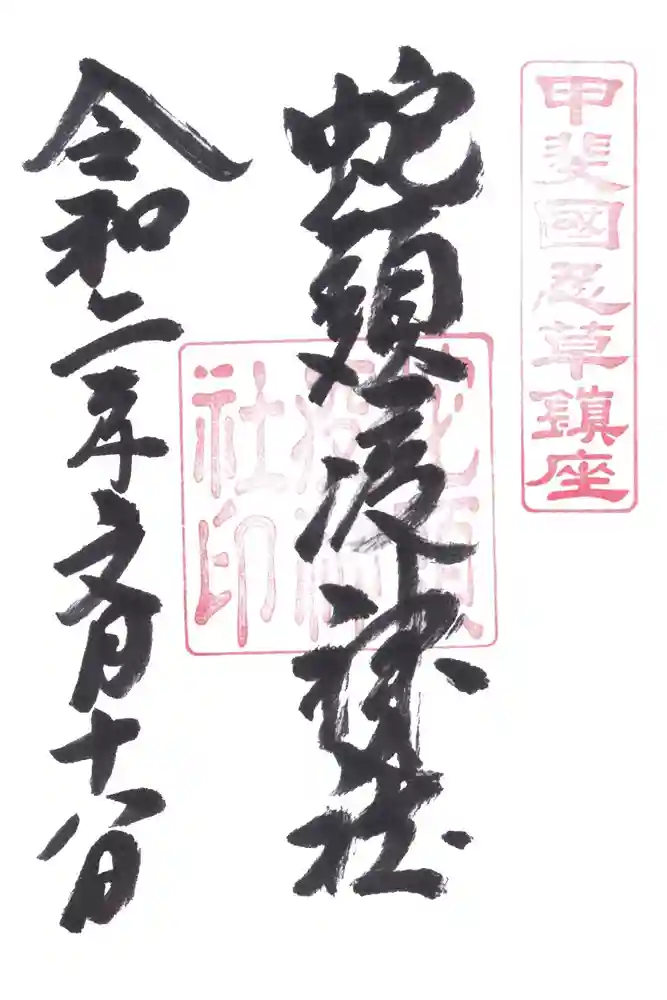 甲斐國忍草鎮座
蛇頭疫神社
社印
令和二年文月十八日